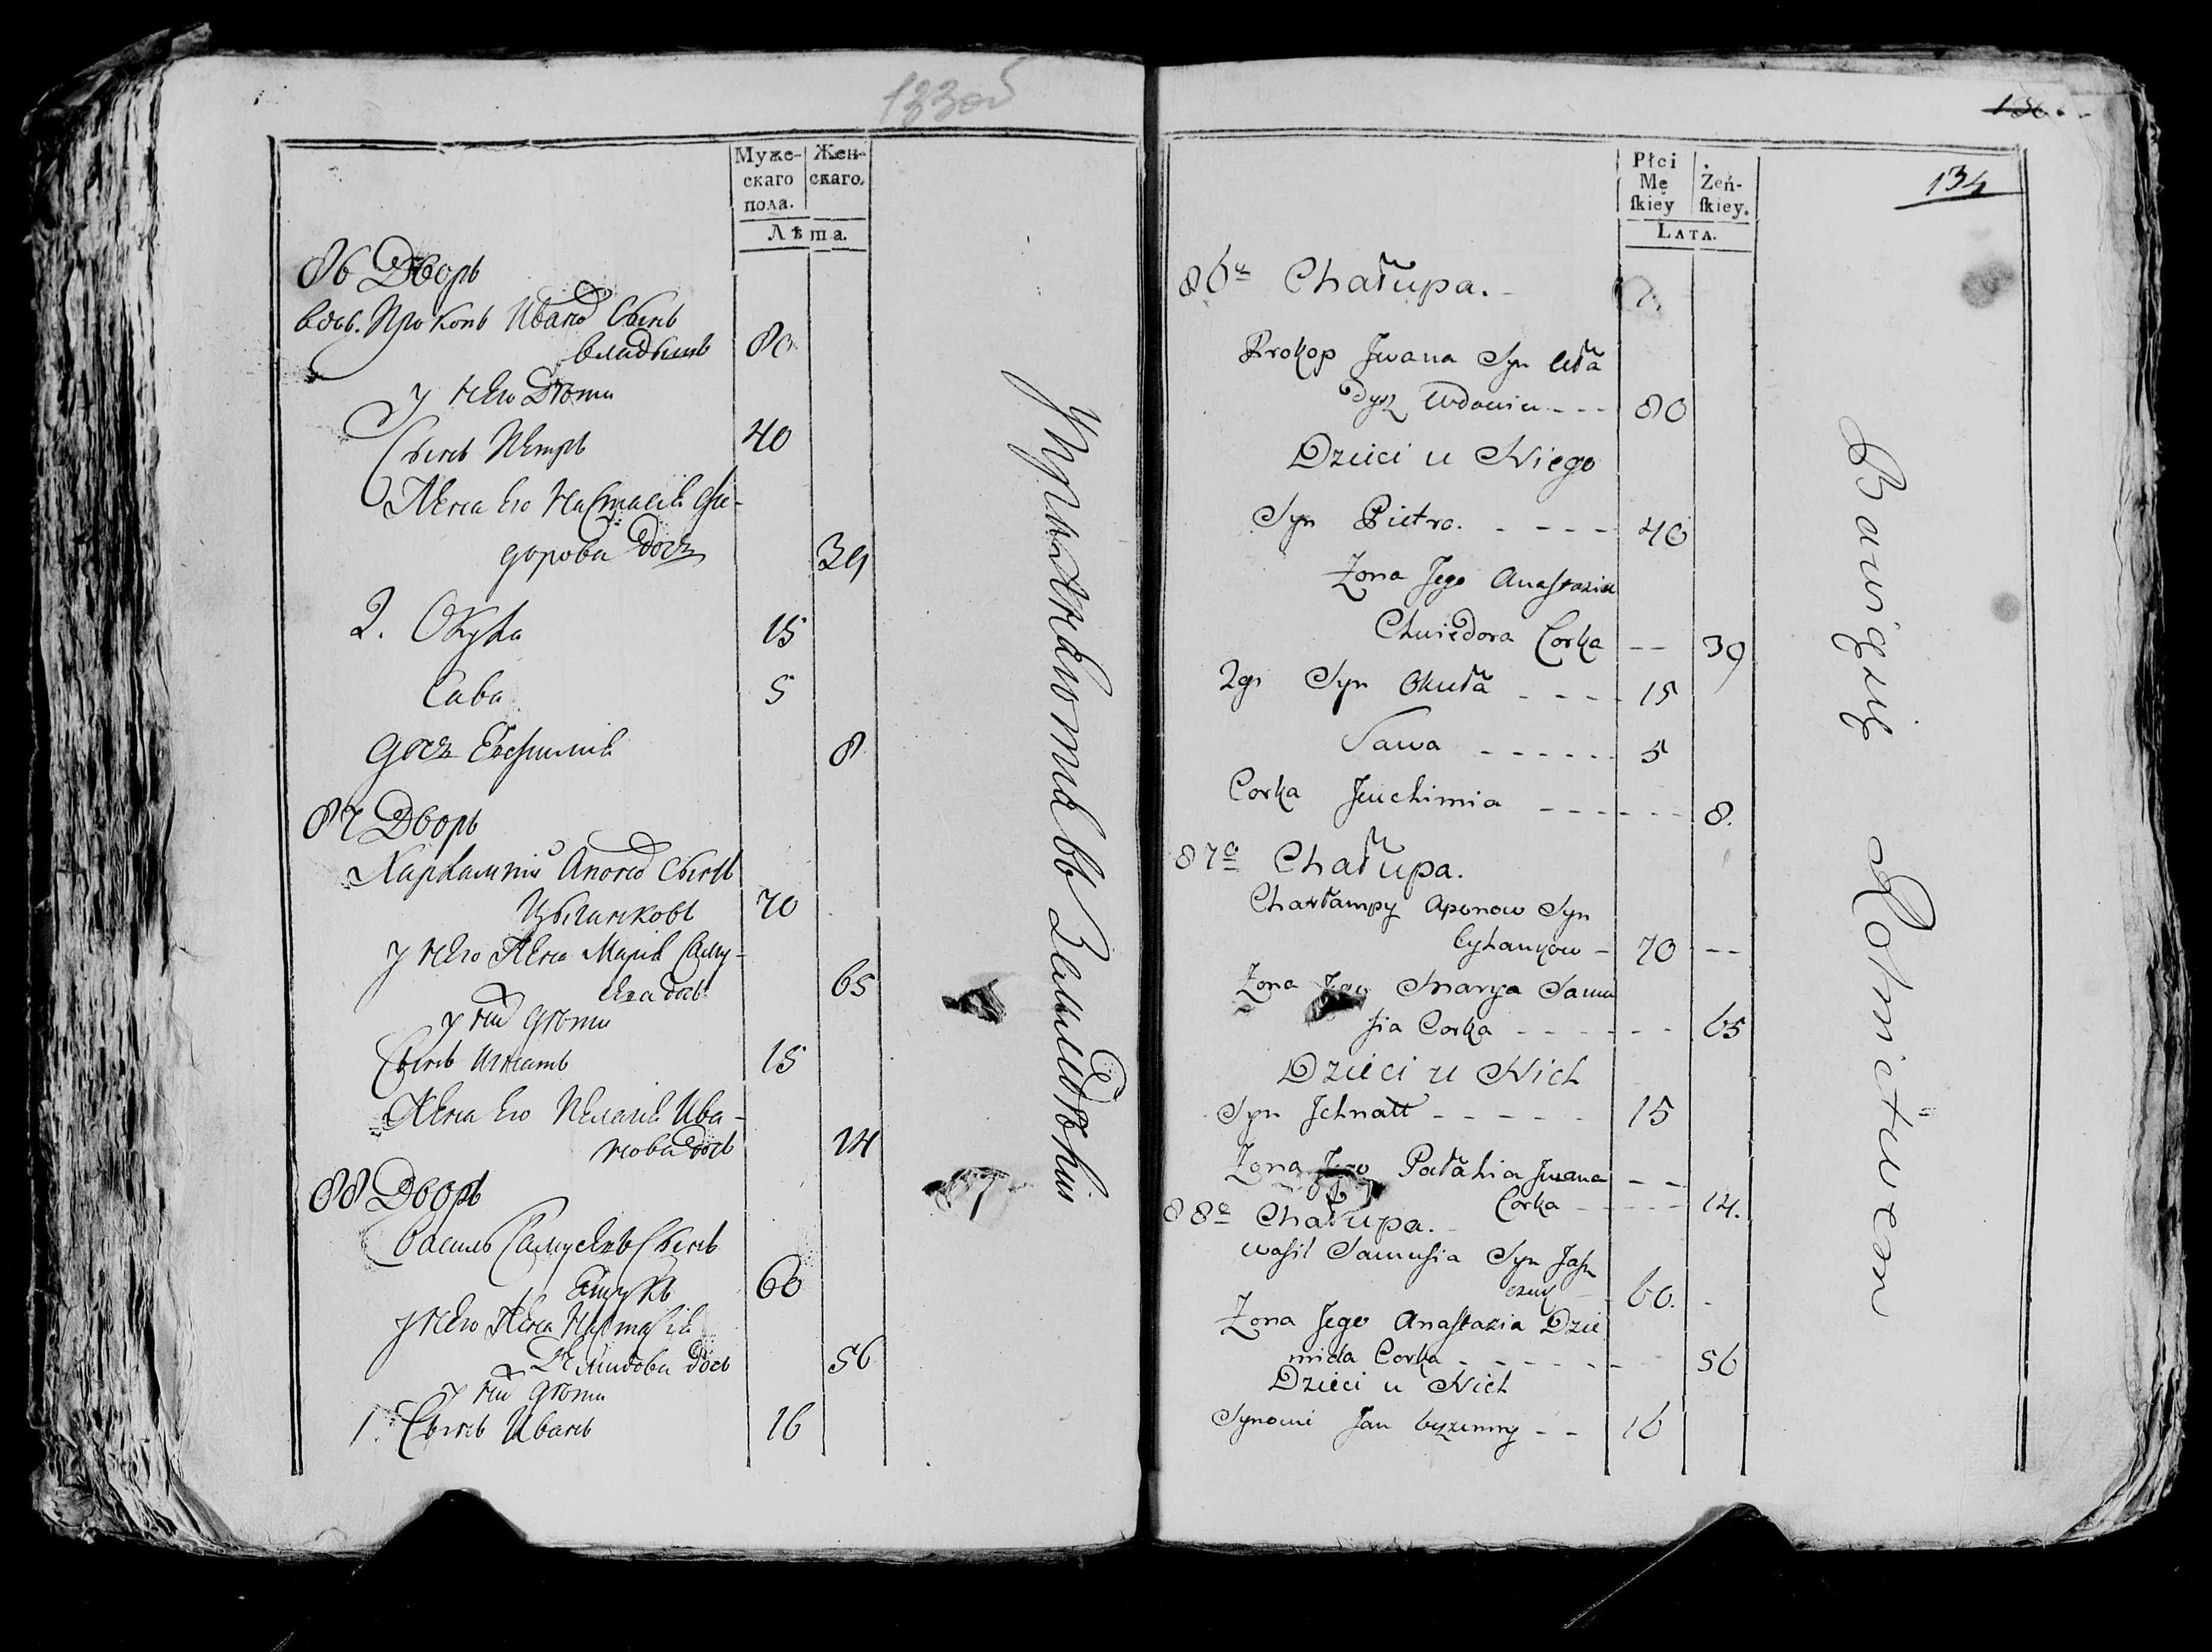 133об
Муже-
скаго
пола.
Жен-
скаго.
Лѣта.
86 Дворъ
вдов. Прокопъ Иванов Сынъ
владышъ 80
у него Дѣти
Сынъ Петръ 40
Жена Его Настасия Фе-
дорова дочь 39
2. Окула 15
Сава 5
дочь Евфимия 8
87 Дворъ
Харлампий Апонов Сынъ
Цыганковъ 70
у него Жена Мария Саму-
дочь 65
у них дѣти
Сынъ Игнатъ 15
Жена Его Пелагия Ива-
нова дочь 14
88 Дворъ
Василь Самуелевъ Сынъ
60
у него Жена Настасия
Демидова дочь 56
у них дѣти
1. Сынъ Иванъ 16
Упражняются въ Земледѣлии
134
Płci
Mę
ſkiey
Żeń-
ſkiey.
Lata.
86a Chałupa.
Prokop Jwana Syn Wła
dysz Wdowiec 80
Dzieci u Niego
Syn Pietro. 40
Zona Jego Anaſtazia
Chwiedora Corka 39
2gi Syn Okuła 15
Sawa 5
Corka Jeuchimia 8.
87a Chałupa.
Charłampy Aponow Syn
Cyhankow 70
Zona Jego Marya Samu
ſia Corka 65
Dzieci u Nich
Syn Jchnatt 15
Zona Jego Pałahia Jwana
Corka 14.
88a Chałupa.
Waſil Samuſia Syn Jaſz
czuk 60.
Zona Jego Anaſtazia Dzie
mida Corka 56
Dzieci u Nich
Synowie Jan 16
Bawią się Rolnictwem